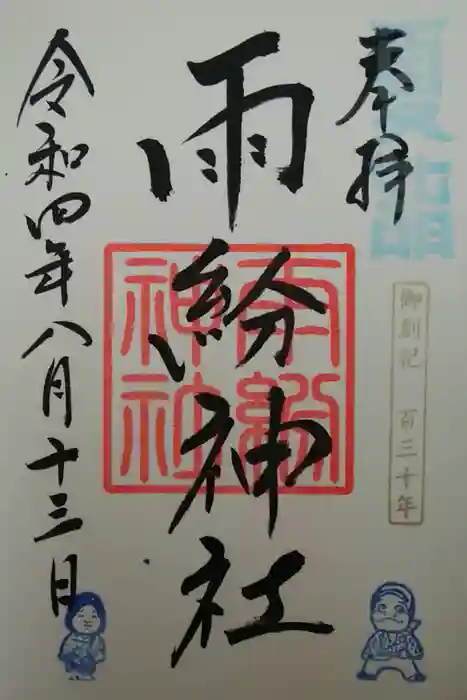 夏詣
奉拝
御創祀 百三十年
雨紛神社
雨紛神社
令和四年八月十三日